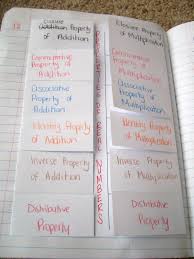 Closure
Addition Property
of Addition
Commutative
Property of
Addition
Associative
Property of
Addition
Identity Property
of Addition
Inverse Property
of Addition
Distributive
Property
NUMBERS
Closure Property of
Multiplication
Commutative
Property of
Multiplication
Associative
Property of
Multiplication
Identity Property
of Multiplication
Inverse Property
of Multiplication
Distributive
Property